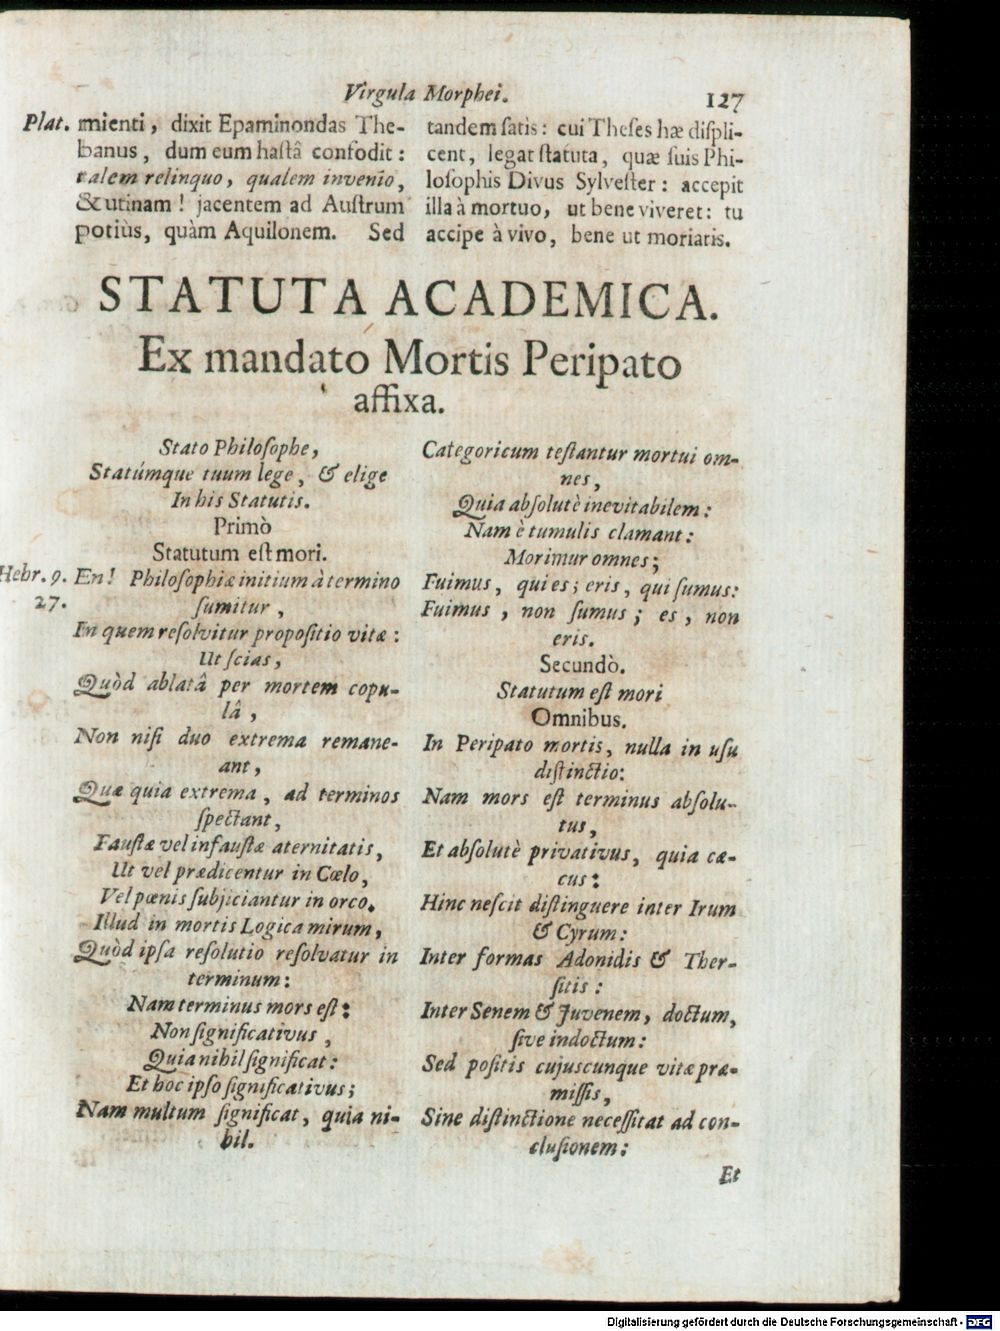 Virgula Morphei. 127
Plat. mienti, dixit Epaminondas The-
banus, dum eum hastâ confodit:
talem relinquo, qualem invenio,
& utinam! jacentem ad Austrum
potiùs, quàm Aquilonem. Sed
tandem satis: cui Theses hæ displi-
cent, legat statuta, quæ suis Phi-
losophis Divus Sylvester: accepit
illa à mortuo, ut bene viveret: tu
accipe à vivo, bene ut moriaris.
STATUTA ACADEMICA.
Ex mandato Mortis Peripato
affixa.
Stato Philosophe,
Statúmque tuum lege, & elige
In his Statutis.
Primò
Statutum est mori.
Hebr. 9. En! Philosophiæ initium à termino
27. sumitur,
In quem resolvitur propositio vitæ:
Ut scias,
Quòd ablatâ per mortem copu-
lâ,
Non nisi duo extrema remane-
ant,
Quæ quia extrema, ad terminos
spectant,
Faustæ vel infaustæ aternitatis,
Ut vel prædicentur in Cœlo,
Vel pœnis subjiciantur in orco.
Illud in mortis Logica mirum,
Quòd ipsa resolutio resolvatur in
terminum:
Nam terminus mors est:
Non significativus,
Quia nihil significat:
Et hoc ipso significativus;
Nam multum significat, quia ni-
hil.
Categoricum testantur mortui om-
nes,
Quia absolutè inevitabilem:
Nam è tumulis clamant:
Morimur omnes;
Fuimus, qui es; eris, qui sumus:
Fuimus, non sumus; es, non
eris.
Secundò.
Statutum est mori
Omnibus.
In Peripato mortis, nulla in usu
distinctio:
Nam mors est terminus absolu-
tus,
Et absolutè privativus, quia cæ-
cus:
Hinc nescit distinguere inter Irum
& Cyrum:
Inter formas Adonidis & Ther-
sitis:
Inter Senem & Juvenem, doctum,
sive indoctum:
Sed positis cujuscunque vitæ præ-
missis,
Sine distinctione necessitat ad con-
clusionem:
Et
Digitalisierung gefördert durch die Deutsche Forschungsgemeinschaft - DFG